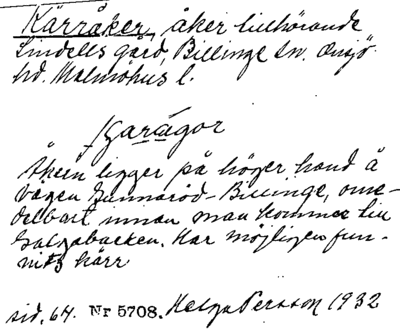 Kärråker, åker tillhörande
Lindells gård, Billinge sn. Onsjö
hd. Malmöhus l.
Åkern ligger på höger hand å
vägen Gunnaröd-Billinge, ome-
delbart innan man kommer till
Galgabacken. Har möjligen fun-
nits kärr
sid. 64. Nr 5708. Helga Persson 1932